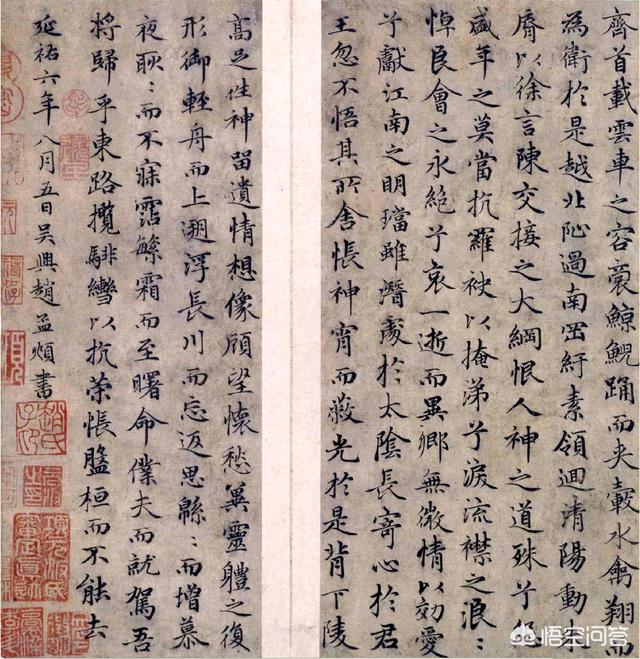 齊首載雲車之容裔鯨鯢踊而夾轂水禽翔而
為衛於是越北沚過南岡紆素領迴清陽動朱
脣以徐言陳交接之大綱恨人神之道殊兮怨
盛年之莫當抗羅袂以掩涕兮淚流襟之浪:
悼良會之永絕兮哀一逝而異鄉無微情以効愛
兮獻江南之明璫雖潛處於太陰長寄心於君
王忽不悟其所舍悵神宵而蔽光於是背下陵
高足往神留遺情想像顧望懷愁冀靈體之復
形御輕舟而上遡浮長川而忘返思緜:而增慕
夜耿:而不寐霑繁霜而至曙命僕夫而就駕吾
將歸乎東路攬騑轡以抗策悵盤桓而不能去
延祐六年八月五日吳興趙孟頫書
趙氏子昂
悟空问答